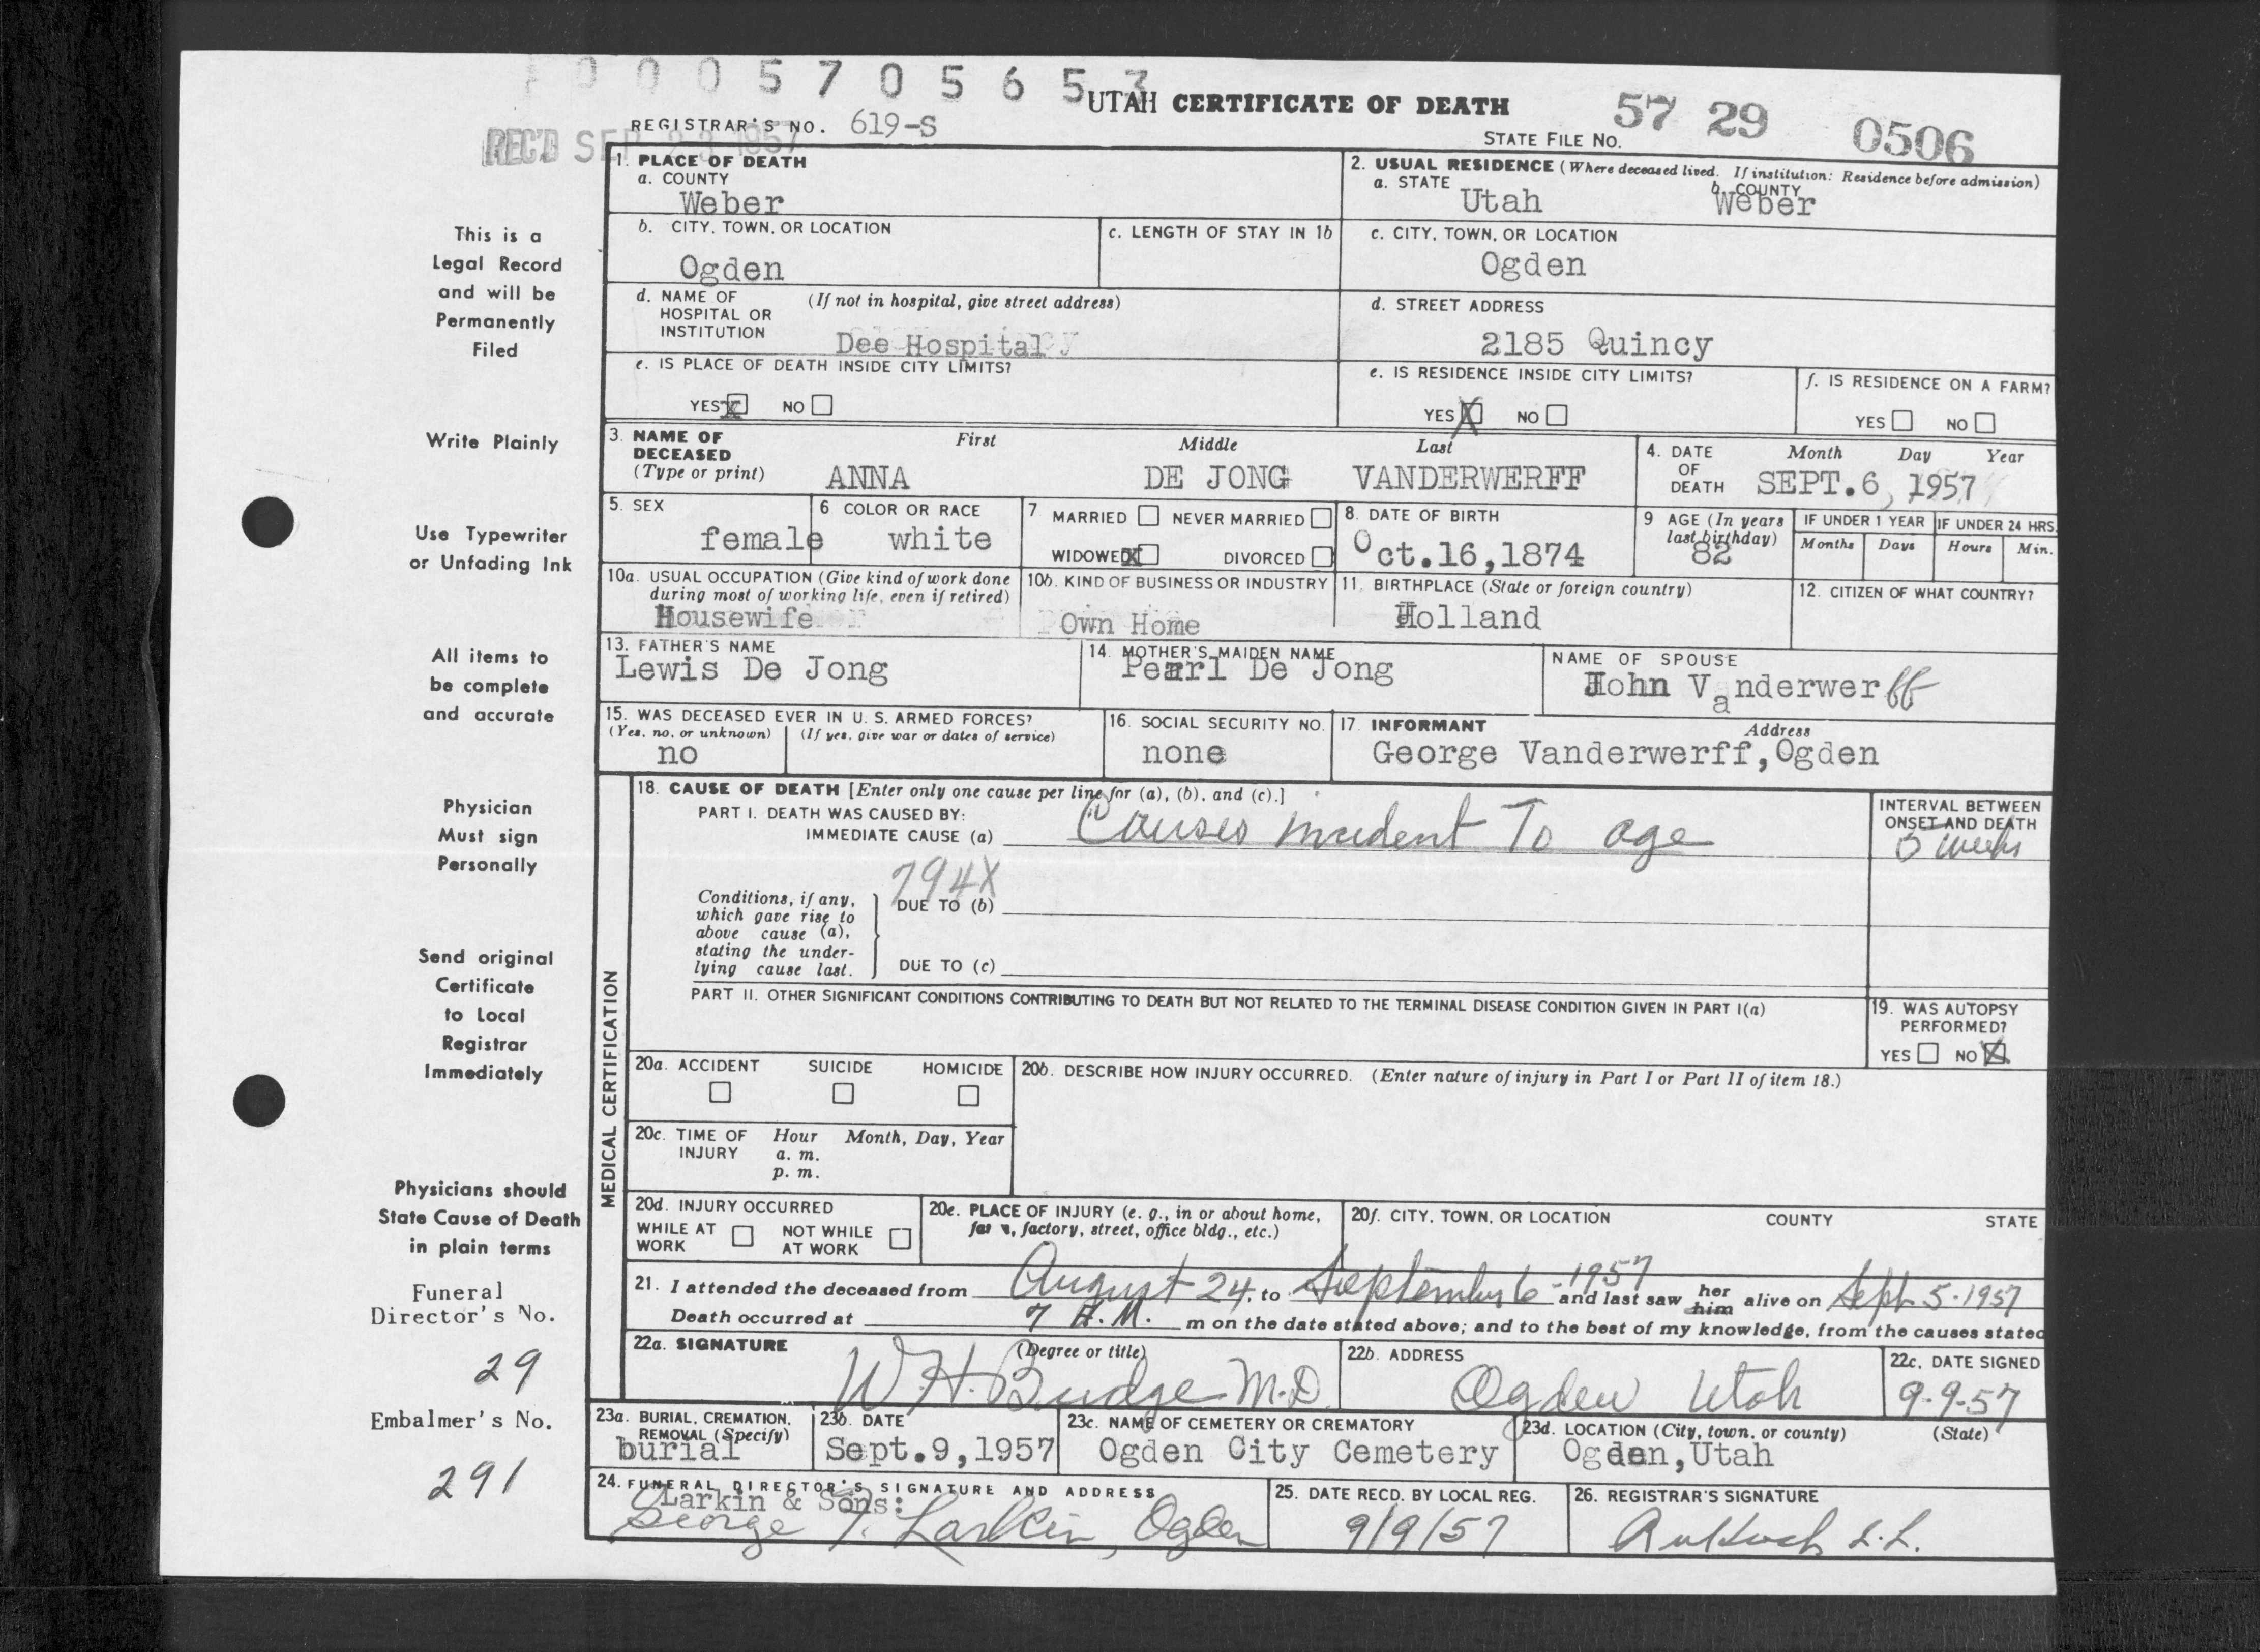 0 0 0 5 7 0 5 6 5 3
UTAH CERTIFICATE OF DEATH
57 29 0506
REGISTRAR'S NO. 619-S
STATE FILE NO.
REC'D SEP 23 1957
1. PLACE OF DEATH
a. COUNTY
Weber
2. USUAL RESIDENCE (Where deceased lived. If institution: Residence before admission)
a. STATE
Utah
b. COUNTY
Weber
b. CITY, TOWN, OR LOCATION
Ogden
c. LENGTH OF STAY IN 1b
c. CITY, TOWN, OR LOCATION
Ogden
d. NAME OF HOSPITAL OR INSTITUTION
(If not in hospital, give street address)
Dee Hospital
d. STREET ADDRESS
2185 Quincy
e. IS PLACE OF DEATH INSIDE CITY LIMITS?
YES X NO
e. IS RESIDENCE INSIDE CITY LIMITS?
YES X NO
f. IS RESIDENCE ON A FARM?
YES NO
3. NAME OF DECEASED
(Type or print)
First Middle Last
ANNA DE JONG VANDERWERFF
4. DATE OF DEATH
Month Day Year
SEPT.6, 1957
5. SEX
female
6 COLOR OR RACE
white
7 MARRIED NEVER MARRIED
WIDOWED X DIVORCED
8. DATE OF BIRTH
Oct.16,1874
9 AGE (In years last birthday)
82
IF UNDER 1 YEAR
Months Days
IF UNDER 24 HRS.
Hours Min.
10a. USUAL OCCUPATION (Give kind of work done during most of working life, even if retired)
Housewife
10b. KIND OF BUSINESS OR INDUSTRY
Own Home
11. BIRTHPLACE (State or foreign country)
Holland
12. CITIZEN OF WHAT COUNTRY?
13. FATHER'S NAME
Lewis De Jong
14. MOTHER'S MAIDEN NAME
Pearl De Jong
NAME OF SPOUSE
John Vanderwerff
15. WAS DECEASED EVER IN U. S. ARMED FORCES?
(Yes, no, or unknown) (If yes, give war or dates of service)
no
16. SOCIAL SECURITY NO.
none
17. INFORMANT Address
George Vanderwerff,Ogden
MEDICAL CERTIFICATION
18. CAUSE OF DEATH [Enter only one cause per line for (a), (b), and (c).]
PART I. DEATH WAS CAUSED BY:
IMMEDIATE CAUSE (a) Causes incident To age
INTERVAL BETWEEN ONSET AND DEATH
5 weeks
794X
Conditions, if any, which gave rise to above cause (a), stating the underlying cause last.
DUE TO (b)
DUE TO (c)
PART II. OTHER SIGNIFICANT CONDITIONS CONTRIBUTING TO DEATH BUT NOT RELATED TO THE TERMINAL DISEASE CONDITION GIVEN IN PART I(a)
19. WAS AUTOPSY PERFORMED?
YES NO X
20a. ACCIDENT SUICIDE HOMICIDE
20b. DESCRIBE HOW INJURY OCCURRED. (Enter nature of injury in Part I or Part II of item 18.)
20c. TIME OF INJURY
Hour Month, Day, Year
a. m.
p. m.
20d. INJURY OCCURRED
WHILE AT WORK NOT WHILE AT WORK
20e. PLACE OF INJURY (e. g., in or about home, farm, factory, street, office bldg., etc.)
20f. CITY, TOWN, OR LOCATION COUNTY STATE
21. I attended the deceased from August 24, to September 6 - 1957 and last saw her him alive on Sept 5-1957
Death occurred at 7 A.M. m on the date stated above; and to the best of my knowledge, from the causes stated
22a. SIGNATURE (Degree or title)
W.H. Budge M.D.
22b. ADDRESS
Ogden Utah
22c. DATE SIGNED
9-9-57
23a. BURIAL, CREMATION, REMOVAL (Specify)
burial
23b. DATE
Sept.9,1957
23c. NAME OF CEMETERY OR CREMATORY
Ogden City Cemetery
23d. LOCATION (City, town, or county) (State)
Ogden,Utah
24. FUNERAL DIRECTOR'S SIGNATURE AND ADDRESS
Larkin & Sons:
George T. Larkin, Ogden
25. DATE RECD. BY LOCAL REG.
9/9/57
26. REGISTRAR'S SIGNATURE
This is a
Legal Record
and will be
Permanently
Filed
Write Plainly
Use Typewriter
or Unfading Ink
All items to
be complete
and accurate
Physician
Must sign
Personally
Send original
Certificate
to Local
Registrar
Immediately
Physicians should
State Cause of Death
in plain terms
Funeral
Director's No.
29
Embalmer's No.
291